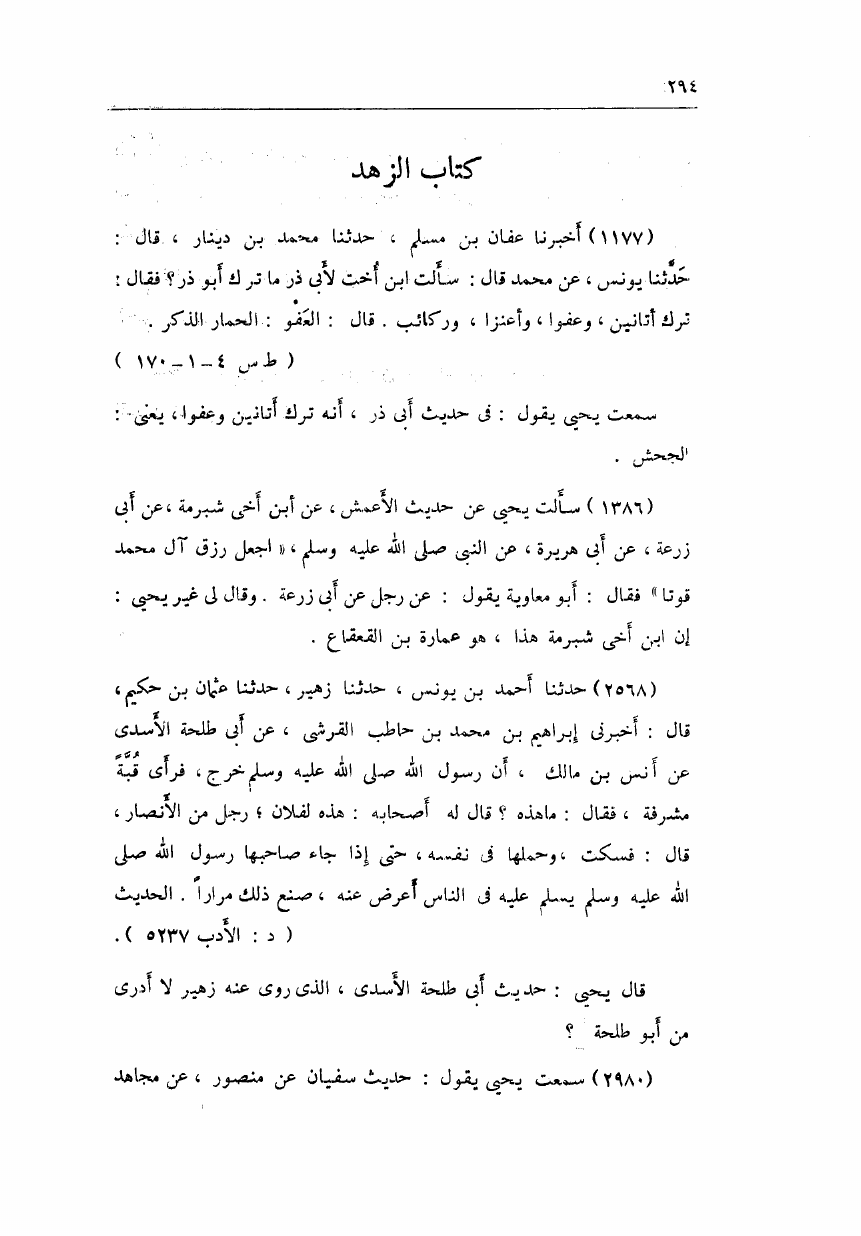 ٢٩٤
كتاب الزهد
(١١٧٧) أخبرنا عفان بن مسلم ، حدثنا محمد بن دينار ، قال :
حَدَّثنا يونس ، عن محمد قال : سأَلت ابن أُخت لأَبى ذر ما ترك أَبو ذر؟ فقال :
ترك أَتانين ، وعفوا ، وأَعنزا ، وركائب . قال : العَفْو : الحمار الذكر .
( ط س ٤ – ١ – ١٧٠ )
سمعت يحيى يقول : فى حديث أَبى ذر ، أَنه ترك أَتانين وعفوا ، يعنى :
الجحش .
(١٣٨٦) سأَلت يحيى عن حديث الأَعمش ، عن أبن أَخى شبرمة ، عن أَبى
زرعة ، عن أَبى هريرة ، عن النبى صلى الله عليه وسلم ، « اجعل رزق آل محمد
قوتا » فقال : أَبو معاوية يقول : عن رجل عن أَبى زرعة . وقال لى غير يحيى :
إن ابن أَخى شبرمة هذا ، هو عمارة بن القعقاع .
(٢٥٦٨) حدثنا أَحمد بن يونس ، حدثنا زهير ، حدثنا عثمان بن حكيم ،
قال : أَخبرنى إبراهيم بن محمد بن حاطب القرشى ، عن أَبى طلحة الأَسدى
عن أَنس بن مالك ، أَن رسول الله صلى الله عليه وسلم خرج ، فرأَى قُبَّةً
مشرفة ، فقال : ماهذه ؟ قال له أَصحابه : هذه لفلان ؛ رجل من الأَنصار ،
قال : فسكت ، وحملها فى نفسه ، حتى إذا جاء صاحبها رسول الله صلى
الله عليه وسلم يسلم عليه فى الناس أَعرض عنه ، صنع ذلك مراراً . الحديث
( د : الأَدب ٥٢٣٧ ) .
قال يحيى : حديث أَبى طلحة الأَسدى ، الذى روى عنه زهير لا أَدرى
من أَبو طلحة ؟
(٢٩٨٠) سمعت يحيى يقول : حديث سفيان عن منصور ، عن مجاهد